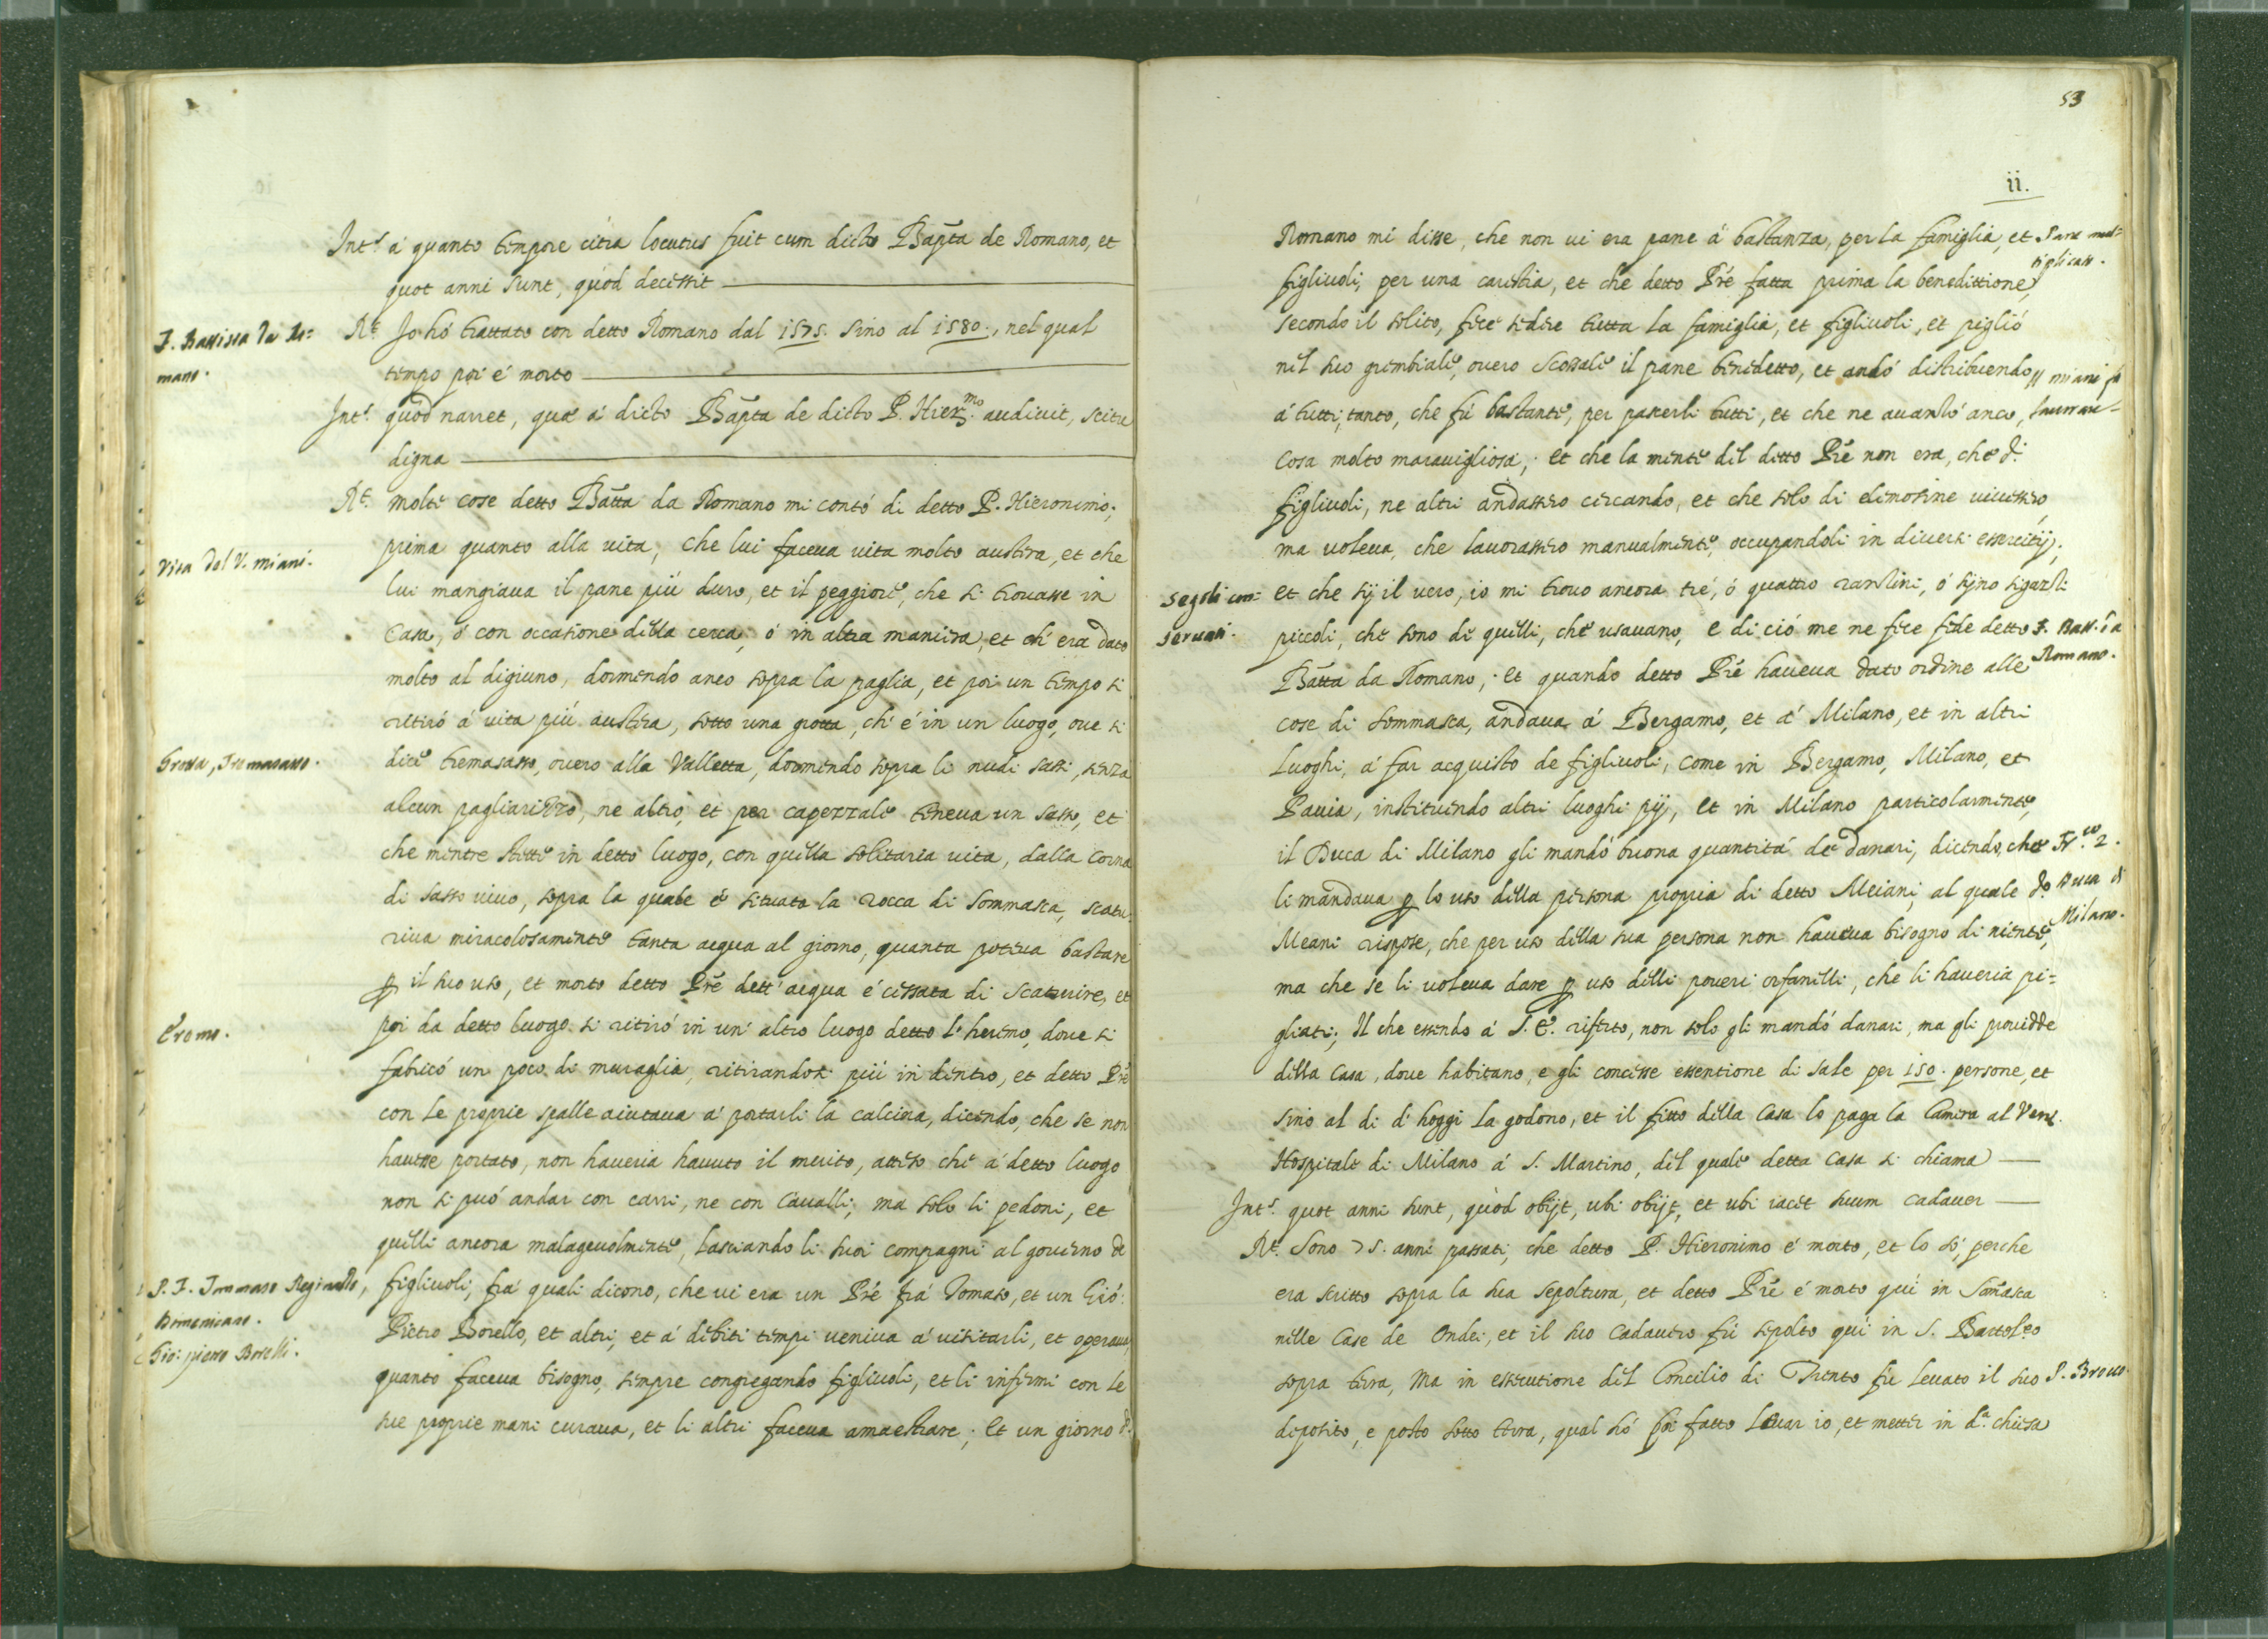 Int.s á quanto tempore citra locutus fuit cum dicto Bapta de Romano, et
quot anni sunt, quòd decessit
F. Battista da Ro=
mano.
R.t Io hó trattato con detto Romano dal 1575. sino al 1580., nel qual
tempo poi é morto
Int.s quòd narret, quæ á dicto Bapta de dicto P. Hier.mo audivit, scitu
digna
R.t molte cose detto Batta da Romano mi contó di detto P. Hieronimo;
prima quanto alla vita, che lui faceva vita molto austera, et che
Vita del V. Miani.
lui mangiava il pane piú duro, et il peggiore, che si trovasse in
Casa, ó con occasione della cerca, ó in altra maniera, et ch' era dato
molto al digiuno, dormendo anco sopra la paglia, et poi un tempo si
retiró á vita piú austera, sotto una grotta, ch' é in un luogo, ove si
Grotta, Tremasasso.
dice tremasasso, overo alla Valletta, dormendo sopra li nudi sassi, senza
alcun pagliarizzo, ne altro, et per capezzale teneva un sasso, et
che mentre stette in detto luogo, con quella solitaria vita, dalla Corna
di sasso vivo, sopra la quale é situata la rocca di Sommasca, scatu=
riva miracolosamente tanta acqua al giorno, quanta poteva bastare
p il suo uso, et morto detto Pre dett' acqua é cessata di scaturire, et
Eremo.
poi da detto luogo si ritiró in un' altro luogo detto l' heremo, dove si
fabricó un poco di muraglia, ritirandosi piú in dentro, et detto Pre
con le proprie spalle aiutava á portarli la calcina, dicendo, che se non
havesse portato, non haveria havuto il merito, atteso che á detto luogo
non si puó andar con carri, ne con Cavalli; ma solo li pedoni, et
quelli ancora malagevolmente, lasciando li suoi compagni al governo de
P. F. Tommaso Reginaldo,
Domenicano.
figliuoli, frá quali dicono, che vi era un Pré frá Tomaso, et un Gió:
Gio: pietro Borelli.
Pietro Borello, et altri, et á debiti tempi veniva á visitarli, et operava,
quanto faceva bisogno, sempre congregando figliuoli, et li infermi con le
sue proprie mani curava, et li altri faceva amaestrare; et un giorno d.
53
ii.
Romano mi disse, che non vi era pane á bastanza, per la famiglia, et
Pane mol=
tiplicato.
figliuoli, per una carestia, et che detto Pré fatta prima la benedittione,
secondo il solito, fece sedere tutta la famiglia, et figliuoli, et piglió
nel suo grembiale, overo scossale il pane benedetto, et andó distribuendo
Il Miani fa
lavorare
á tutti, tanto, che fú bastante, per pascerli tutti, et che ne avanzó anco,
cosa molto maravigliosa; et che la mente del detto Pré non era, che d.i
figliuoli, ne altri andassero cercando, et che solo di elemosine vivessero,
ma voleva, che lavorassero manualmente, occupandoli in diversi essercitij;
Segoli con=
servati.
et che sij il vero, io mi trovo ancora tré, ó quattro ranslini, ó sijno sigazli
piccoli, che sono di quelli, che usavano, e di ció me ne fece fede detto
F. Batt.a da
Romano.
Batta da Romano; et quando detto Pré haveva dato ordine alle
cose di Sommasca, andava á Bergamo, et á Milano, et in altri
Luoghi, á far acquisto de figliuoli, come in Bergamo, Milano, et
Pavia, instituendo altri luoghi pij, et in Milano particolarmente,
il Duca di Milano gli mandó buona quantitá de danari, dicendo, che
Fr.co 2.
Duca di
Milano.
li mandava p lo uso della persona propria di detto Meiani, al quale d.o
Meani rispose, che per uso della sua persona non haveva bisogno di niente,
ma che se li voleva dare p uso delli poveri orfanelli, che li haveria pi=
gliati; Il che essendo á S. E. riferto, non solo gli mandó danari, ma gli providde
della Casa, dove habitano, e gli concesse essentione di sale per 150. persone, et
sino al di d' hoggi la godono, et il fitto della Casa lo paga la Camera al Ven.
Hospitale di Milano á S. Martino, del quale detta Casa si chiama
Int.s quot anni sunt, quòd obijt, ubi obijt, et ubi iacet suum cadaver
R.t Sono 75. anni passati, che detto P. Hieronimo é morto, et lo só, perche
era scritto sopra la sua sepoltura, et detto Pre é morto quí in Somasca
nelle Case de Ondei, et il suo Cadavero fú sepolto quí in S. Bartoleo
sopra terra, Ma in essecutione del Concilio di Trento fú levato il suo
deposito, e posto sotto terra, qual hó poi fatto levar io, et metter in d.a chiesa